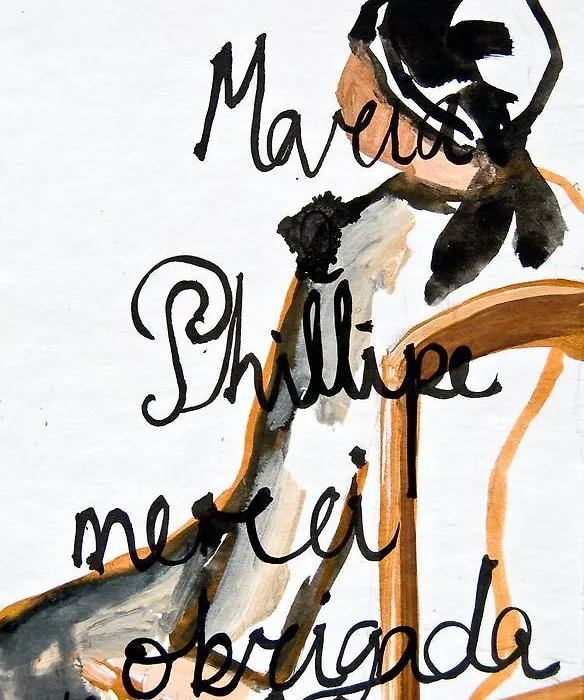 Phillipe
merci
obrigada